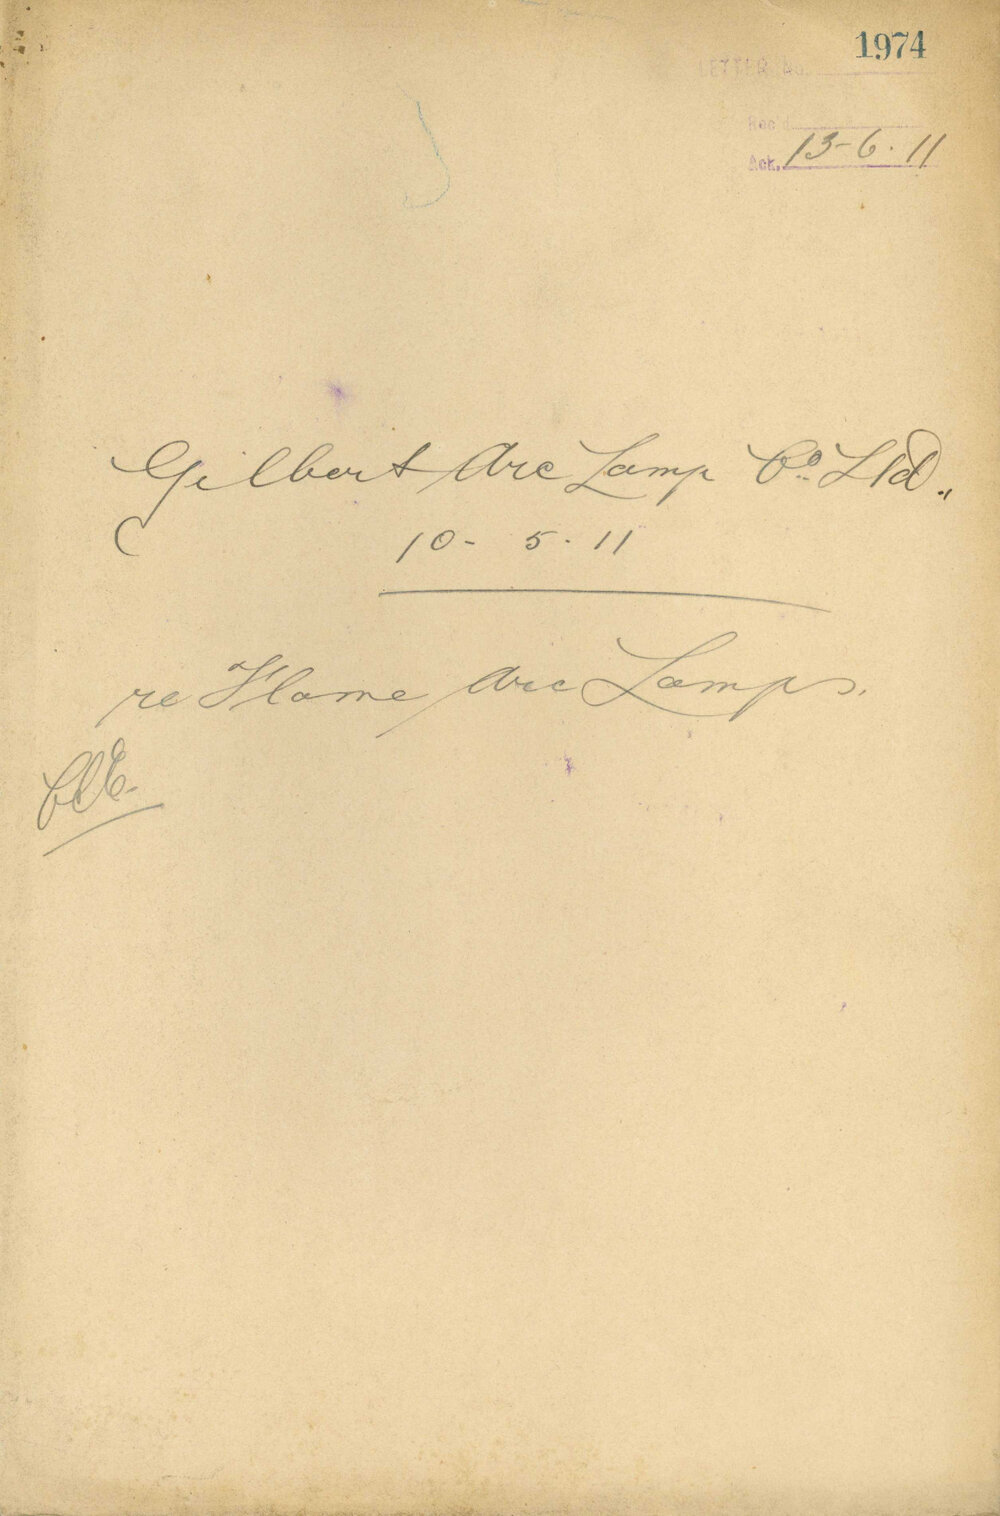 1974
LETTER No.
Rec'd
Ack. 13-6.11
Gilbert Arc Lamp Co. Ltd.,
10-5.11
re Flame Arc Lamps.